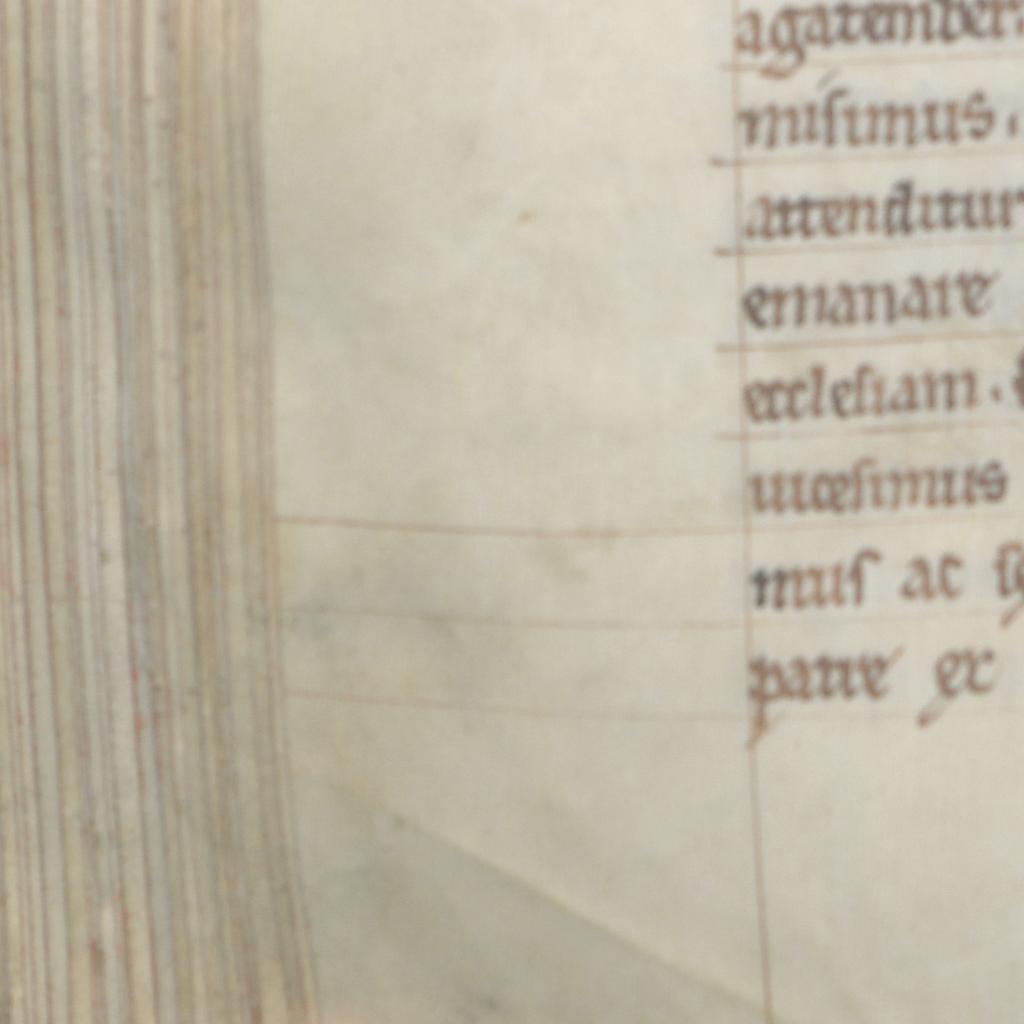 misimus.
attenditur
emanare
ecclesiam.
uicesimus
mus ac
patre ex